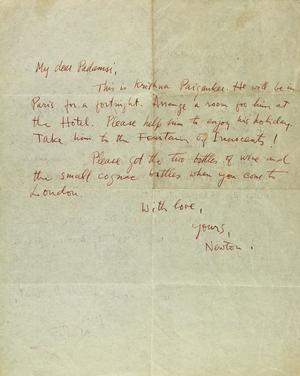 My dear Padamsi,
This is Krishna Paigankar. He will be in
Paris for a fortnight. Arrange a room for him at
the Hotel. Please help him to enjoy his holiday.
Take him to the Fountain of Innocents!
Please get the two bottles of wine and
the small cognac bottles when you come to
London.
With love,
yours,
Newton.